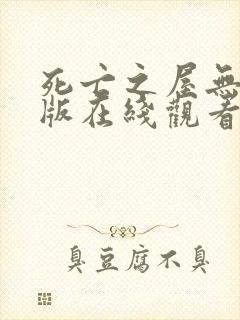 死亡之屋無
版在綫觀看
臭豆腐不臭